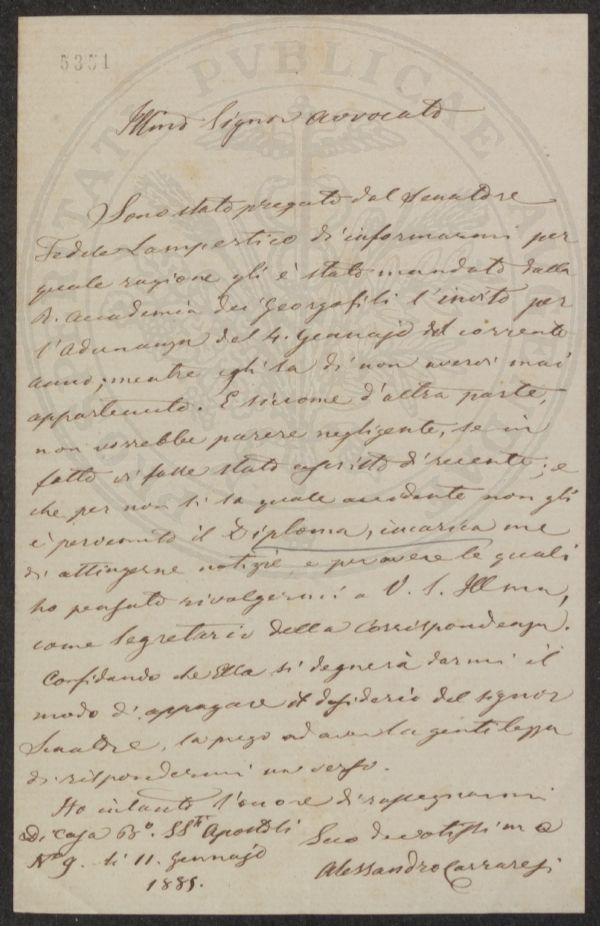 5351
Illmo Signor Avvocato
Sono stato pregato dal Senatore
Fedele Lampertico d'informarmi per
quale ragione gli è stato mandato dalla
R. Accademia dei Georgofili l'invito per
l'Adunanza del 4. Gennajo del corrente
anno, mentre egli sa di non avervi mai
appartenuto. E siccome d'altra parte,
non vorrebbe parere negligente, se in
fatto vi fosse stato ascritto di recente; e
che per non si sa quale accidente non gli
è pervenuto il Diploma, incarica me
di attingerne notizie, e per avere le quali
ho pensato rivolgermi a V. S. Illma,
come Segretario della Corrispondenza.
Confidando che Ella si degnerà darmi il
modo di appagare il desiderio del signor
Senatore, la prego ad aver la gentilezza
di rispondermi un verso.
Ho intanto l'onore di rassegnarmi
Di Casa Bo. SSti Apostoli
No 9. li 11. Gennajo
1885.
Suo devotissimo
Alessandro Carraresi